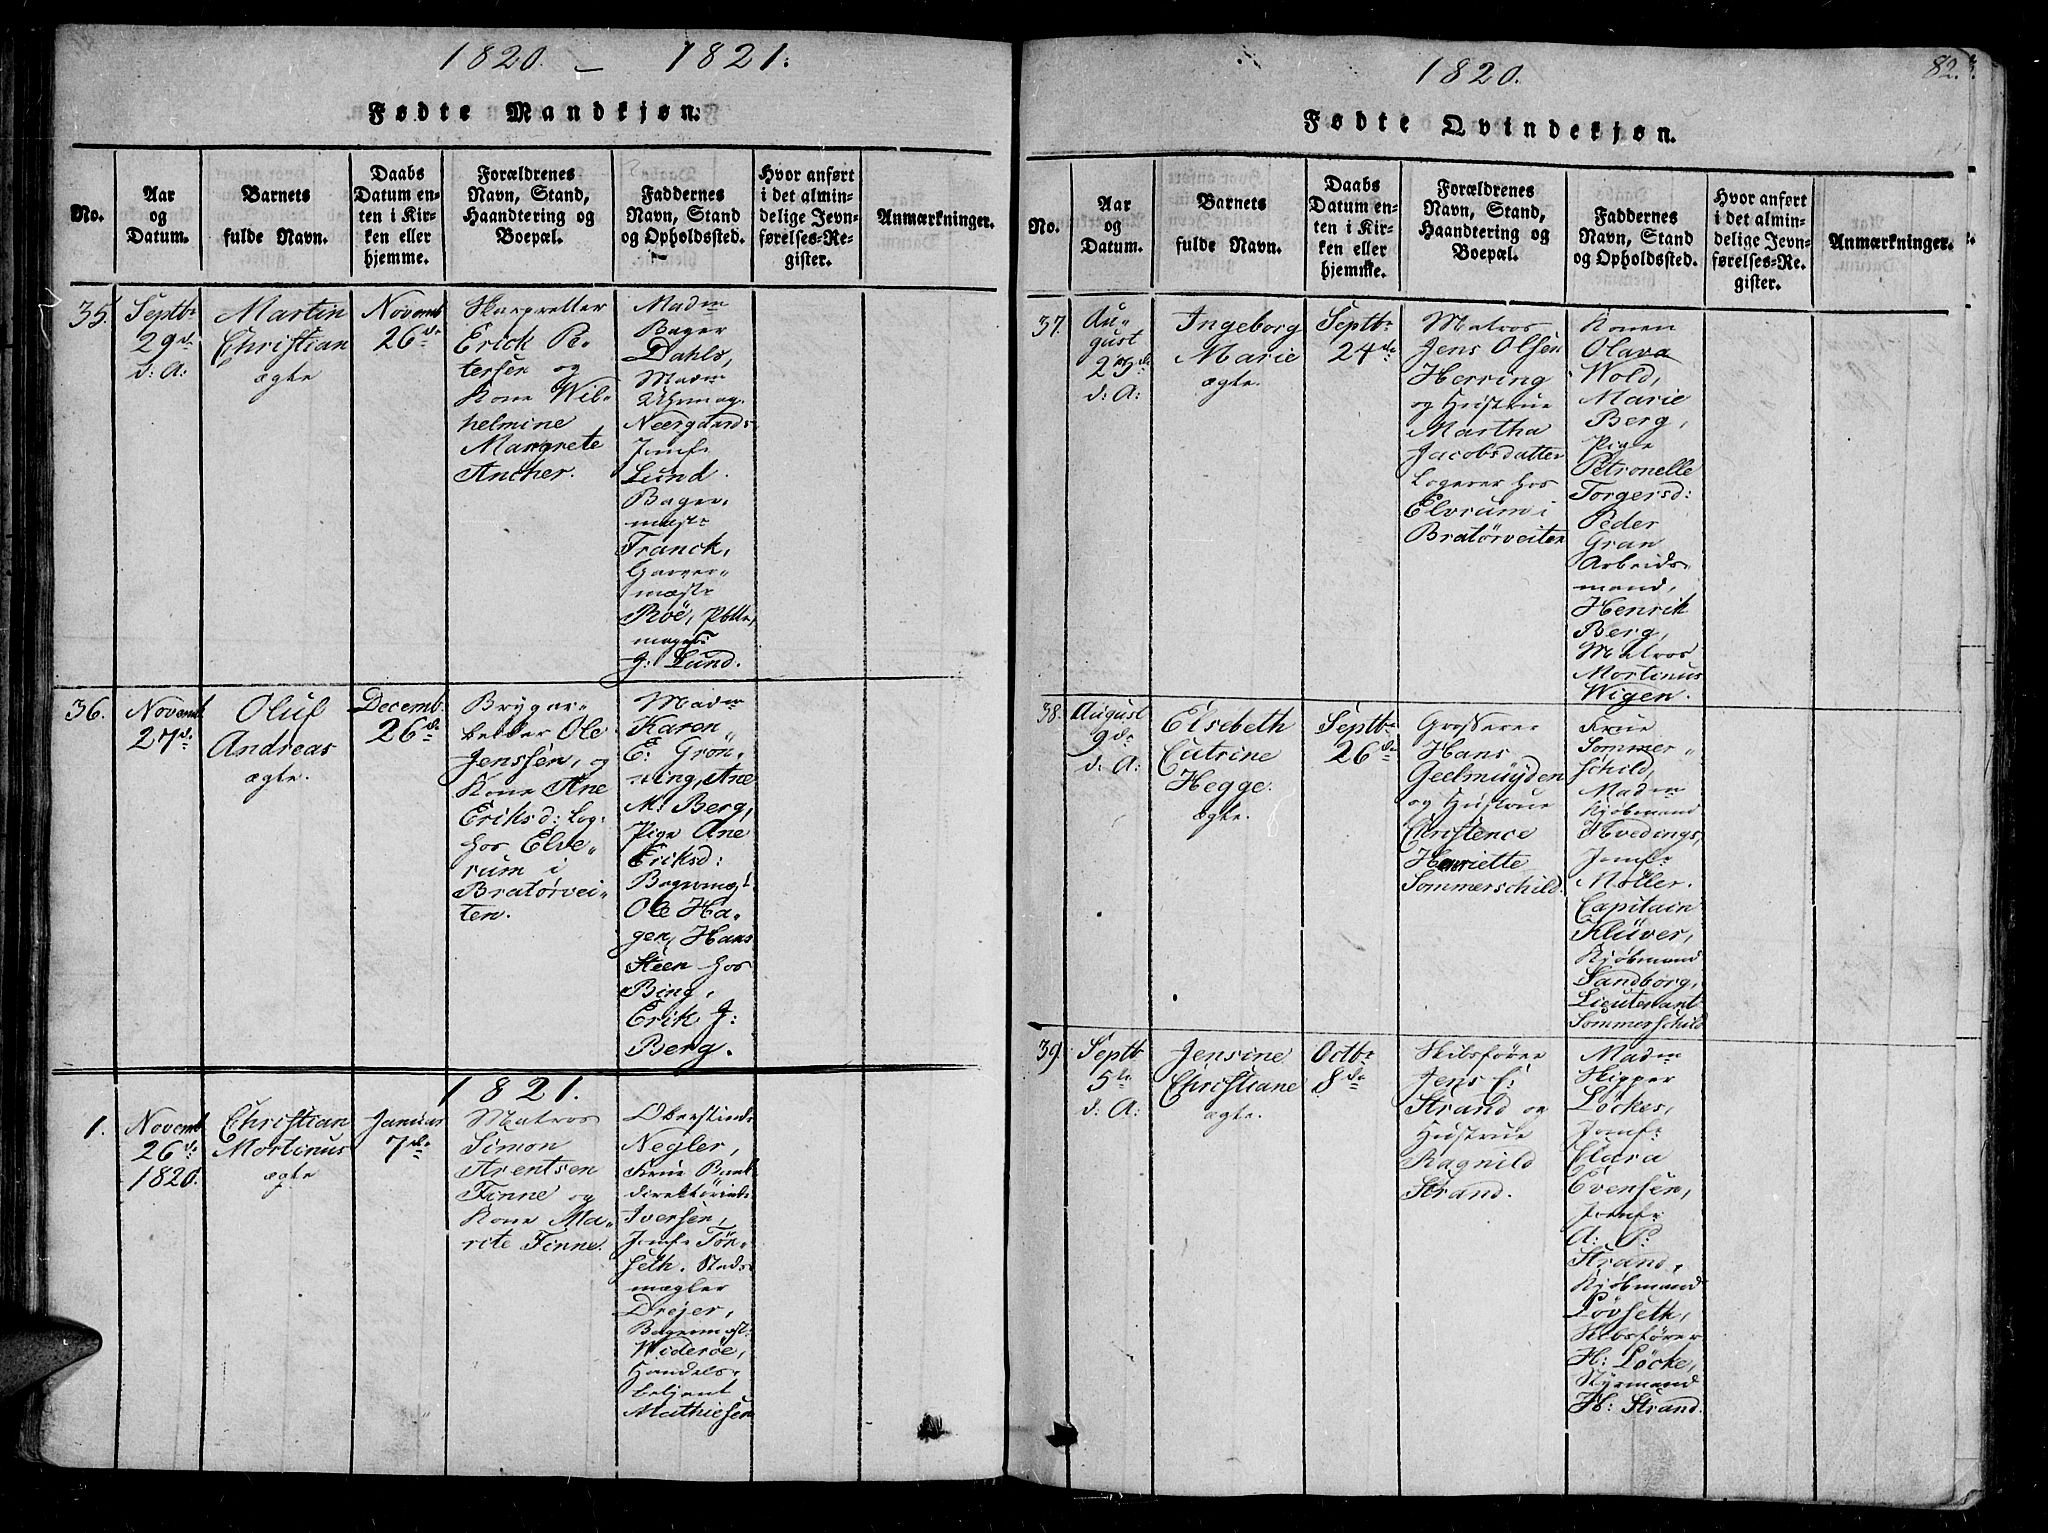 1820. – 1821.
Fødte Mandkjøn.
No.
Aar
og
Datum.
Barnets
fulde Navn.
Daabs
Datum en-
ten i Kir-
ken eller
hjemme.
Forældrenes
Navn, Stand,
Haandtering og
Boepæl.
Faddernes
Navn, Stand
og Opholdssted.
Hvor anført
i det almin-
delige Jevn-
førelses-Re-
gister.
Anmærkninger.
35.
Septbr
29de
d: A:
Martin
Christian
ægte
Novemb
26de
Skarpretter
Erick Pe-
tersen og
Kone Wil-
helmine
Margrete
Ancher.
Madm
Bager
Dahls,
Madm
Uhrmag.
Neergaard.
Jomfr
Lund.
Bager-
mestr
Franck,
Garver-
mæstr
Roë, Potte-
mager
J: Lund.
36.
Novemb
27de
Oluf
Andreas
ægte.
Decemb.
26de
Brygger-
Ole
Jenssen, og
Kone Ane
Eriksd: Log:
hos Elve-
rum i
Bratørvei-
ten.
Madm
Karen
E: Grön-
ning, Ane
M: Berg,
Pige Ane
Eriksd:
Ole Ha-
gen, Hans
Steen hos
Bing,
Erik J:
Berg.
1821.
1.
Novemb
26de
1820.
Christian
Mortinus
ægte
Januar
7de
Matros
Simon
Arentsen
Finne og
Kone Ma-
rite Finne.
Negler,
Frue
direktörinde
Iversen,
Jomfr Tön-
seth. Stads-
mægler
Drejer,
Bagermest:
Widerøe,
Handels-
betjent
Mathiesen
1820.
82.
Fødte Qvindekjøn.
No.
Aar
og
Datum.
Barnets
fulde Navn.
Daabs
Datum en-
ten i Kir-
ken eller
hjemme.
Forældrenes
Navn, Stand,
Haandtering og
Boepæl.
Faddernes
Navn, Stand
og Opholdssted.
Hvor anført
i det almin-
delige Jevn-
førelses-Re-
gister.
Anmærkninger.
37.
Au-
gust
25de
d: A:
Ingeborg
Marie
ægte.
Septbr
24de
Matros
Jens Olsen
Herring
og Hustrue
Martha
Jacobsdatter
Logerer hos
Elvrum i
Bratørveiten
Konen
Olava
Wold,
Marie
Berg,
Pige
Petronelle
Torgersd:
Peder
Gran
Arbeids-
mand,
Henrik
Berg,
Matros
Mortinus
Wigen.
38.
August
9de
d: A:
Elsebeth
Catrine
Hegge.
ægte.
Septbr
26de
Grosserer
Hans
Geelmuÿden
og Hustrue
Christence
Henriette
Sommerschild.
Frue
Sommer-
schild,
Madm
Kjöbmand
Hvedings,
Jomfr
Möller.
Capitain
Klüver,
Kjöbmand
Sandborg,
Lieutenant
Sommerschild
39.
Septb
5te
d: A:
Jensine
Christiane
ægte.
Octbr
8de
Skibsfører
Jens C:
Strand og
Hustrue
Ragnild
Strand.
Madm
Skipper
Löckes,
Jomfr
Clara
Evensen,
Jomfr
A: P:
Strand,
Kjöbmand
Lövseth,
Skibsfører
H: Löcke,
Styrmand
H: Strand.